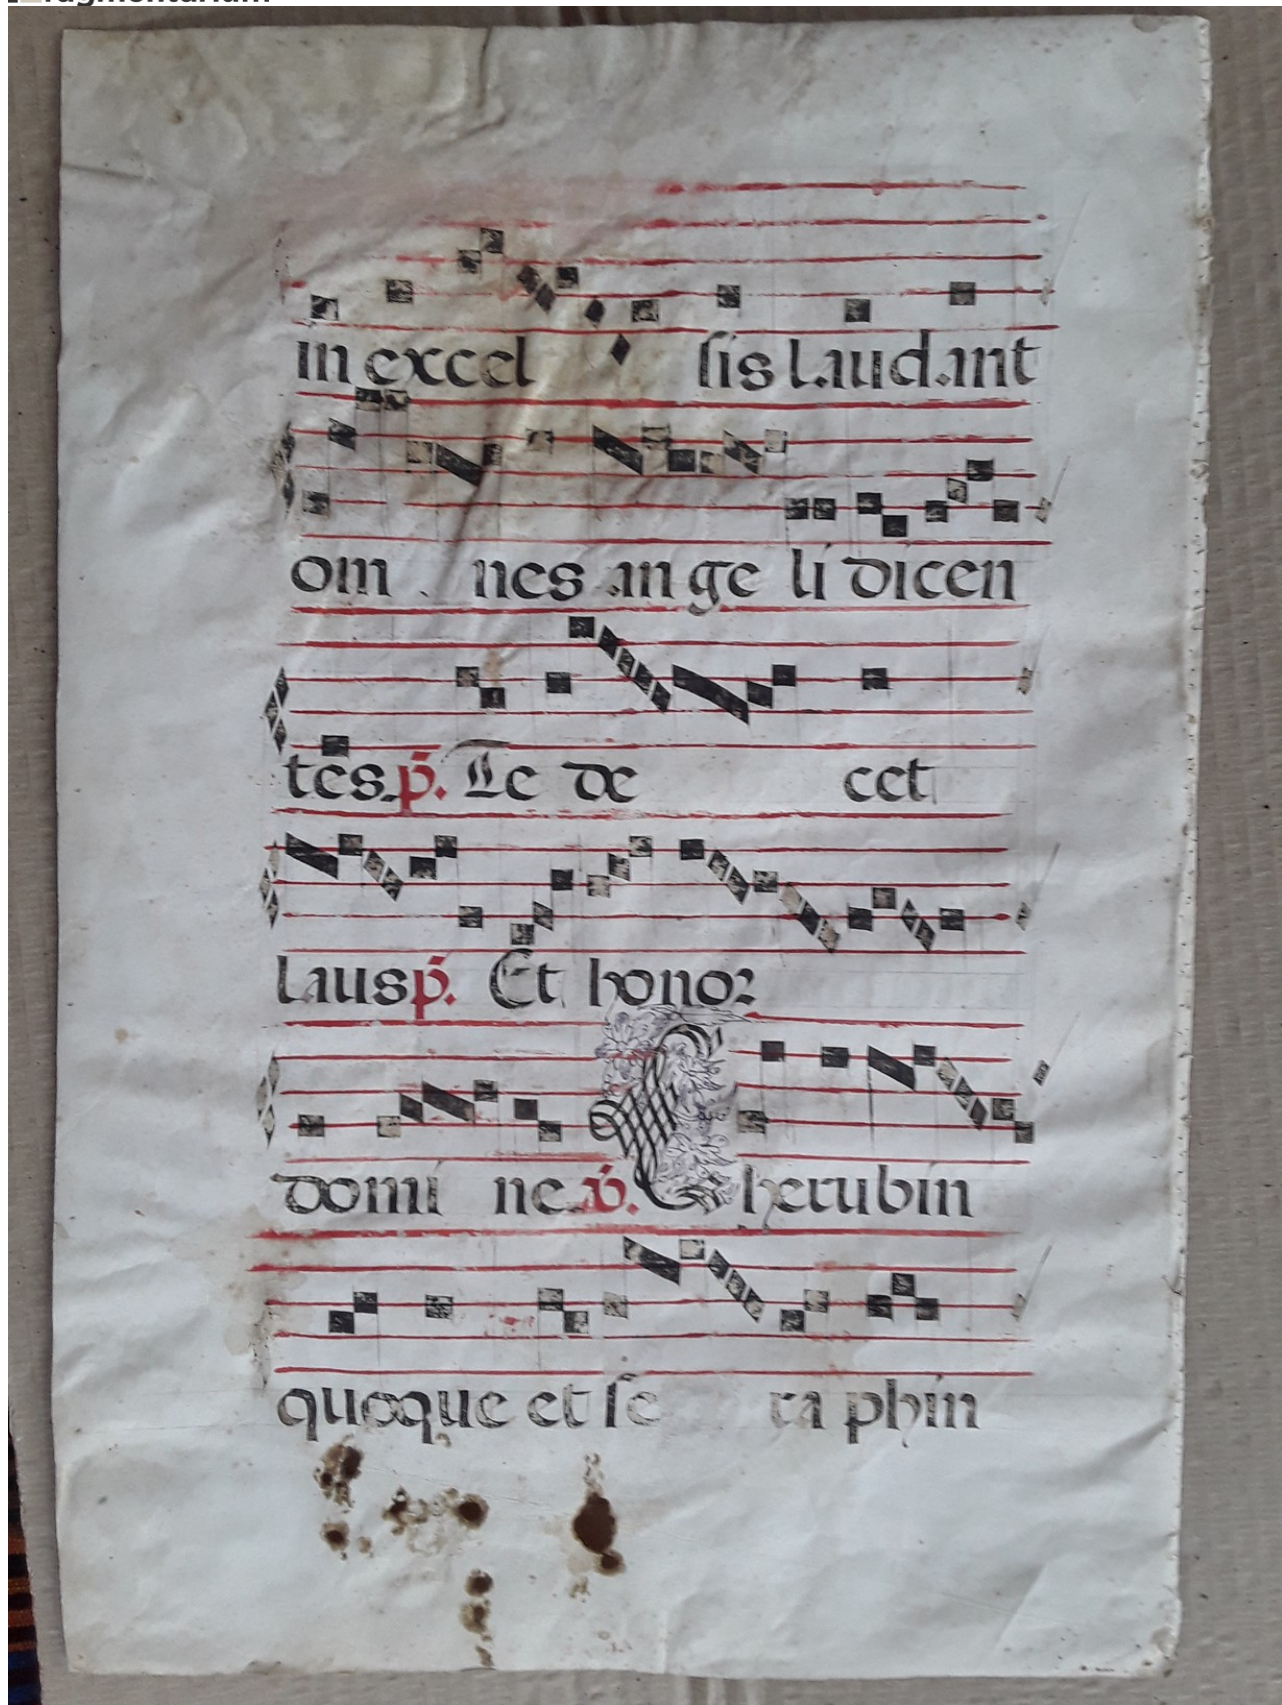 in excel sis laudant
om nes an ge li dicen
tes. p. Te de cet
laus p. Et honor
domi ne. v. Cherubin
quoque et se ra phin